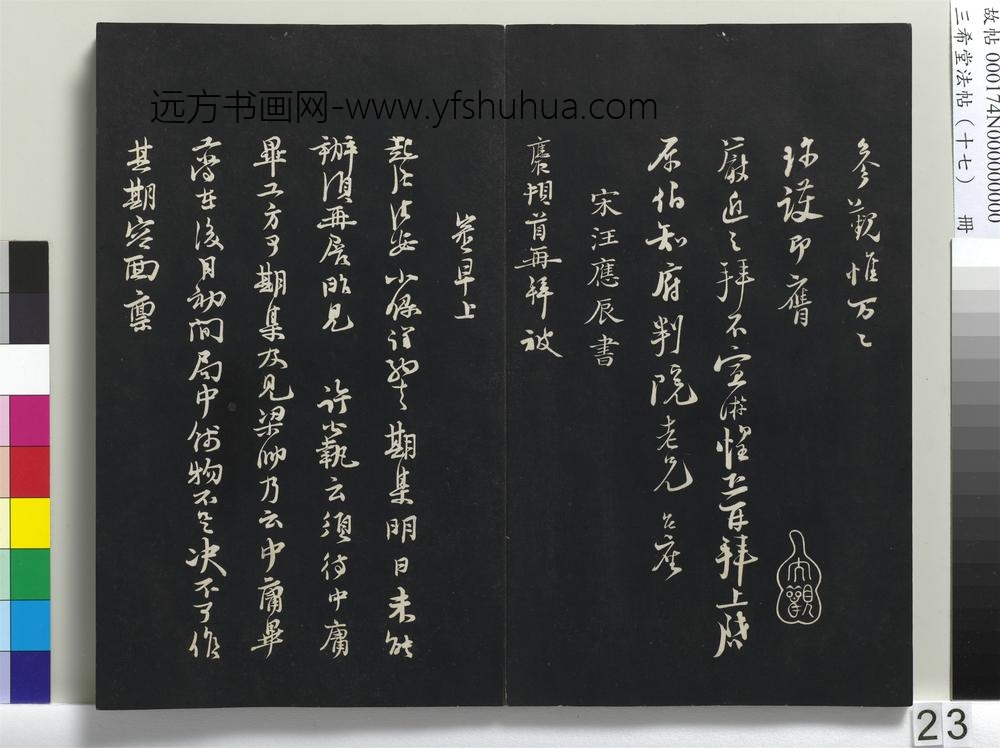 远方书画网-www.yfshuhua.com
故帖 000174N000000000
三希堂法帖（十七） 册
参觐惟万々
珍護即膺
嚴近之拜不宣
惶恐百拜上啟
原伯知府判院老兄台座
大觀
宋汪應辰書
應頓首再拜被
答早上
期集明日未能
辦須再展昨見 許公執云須待中庸
畢工方可期集及見梁帅乃云中庸畢
在後月初間局中什物不足決不可作
其期容面稟
23